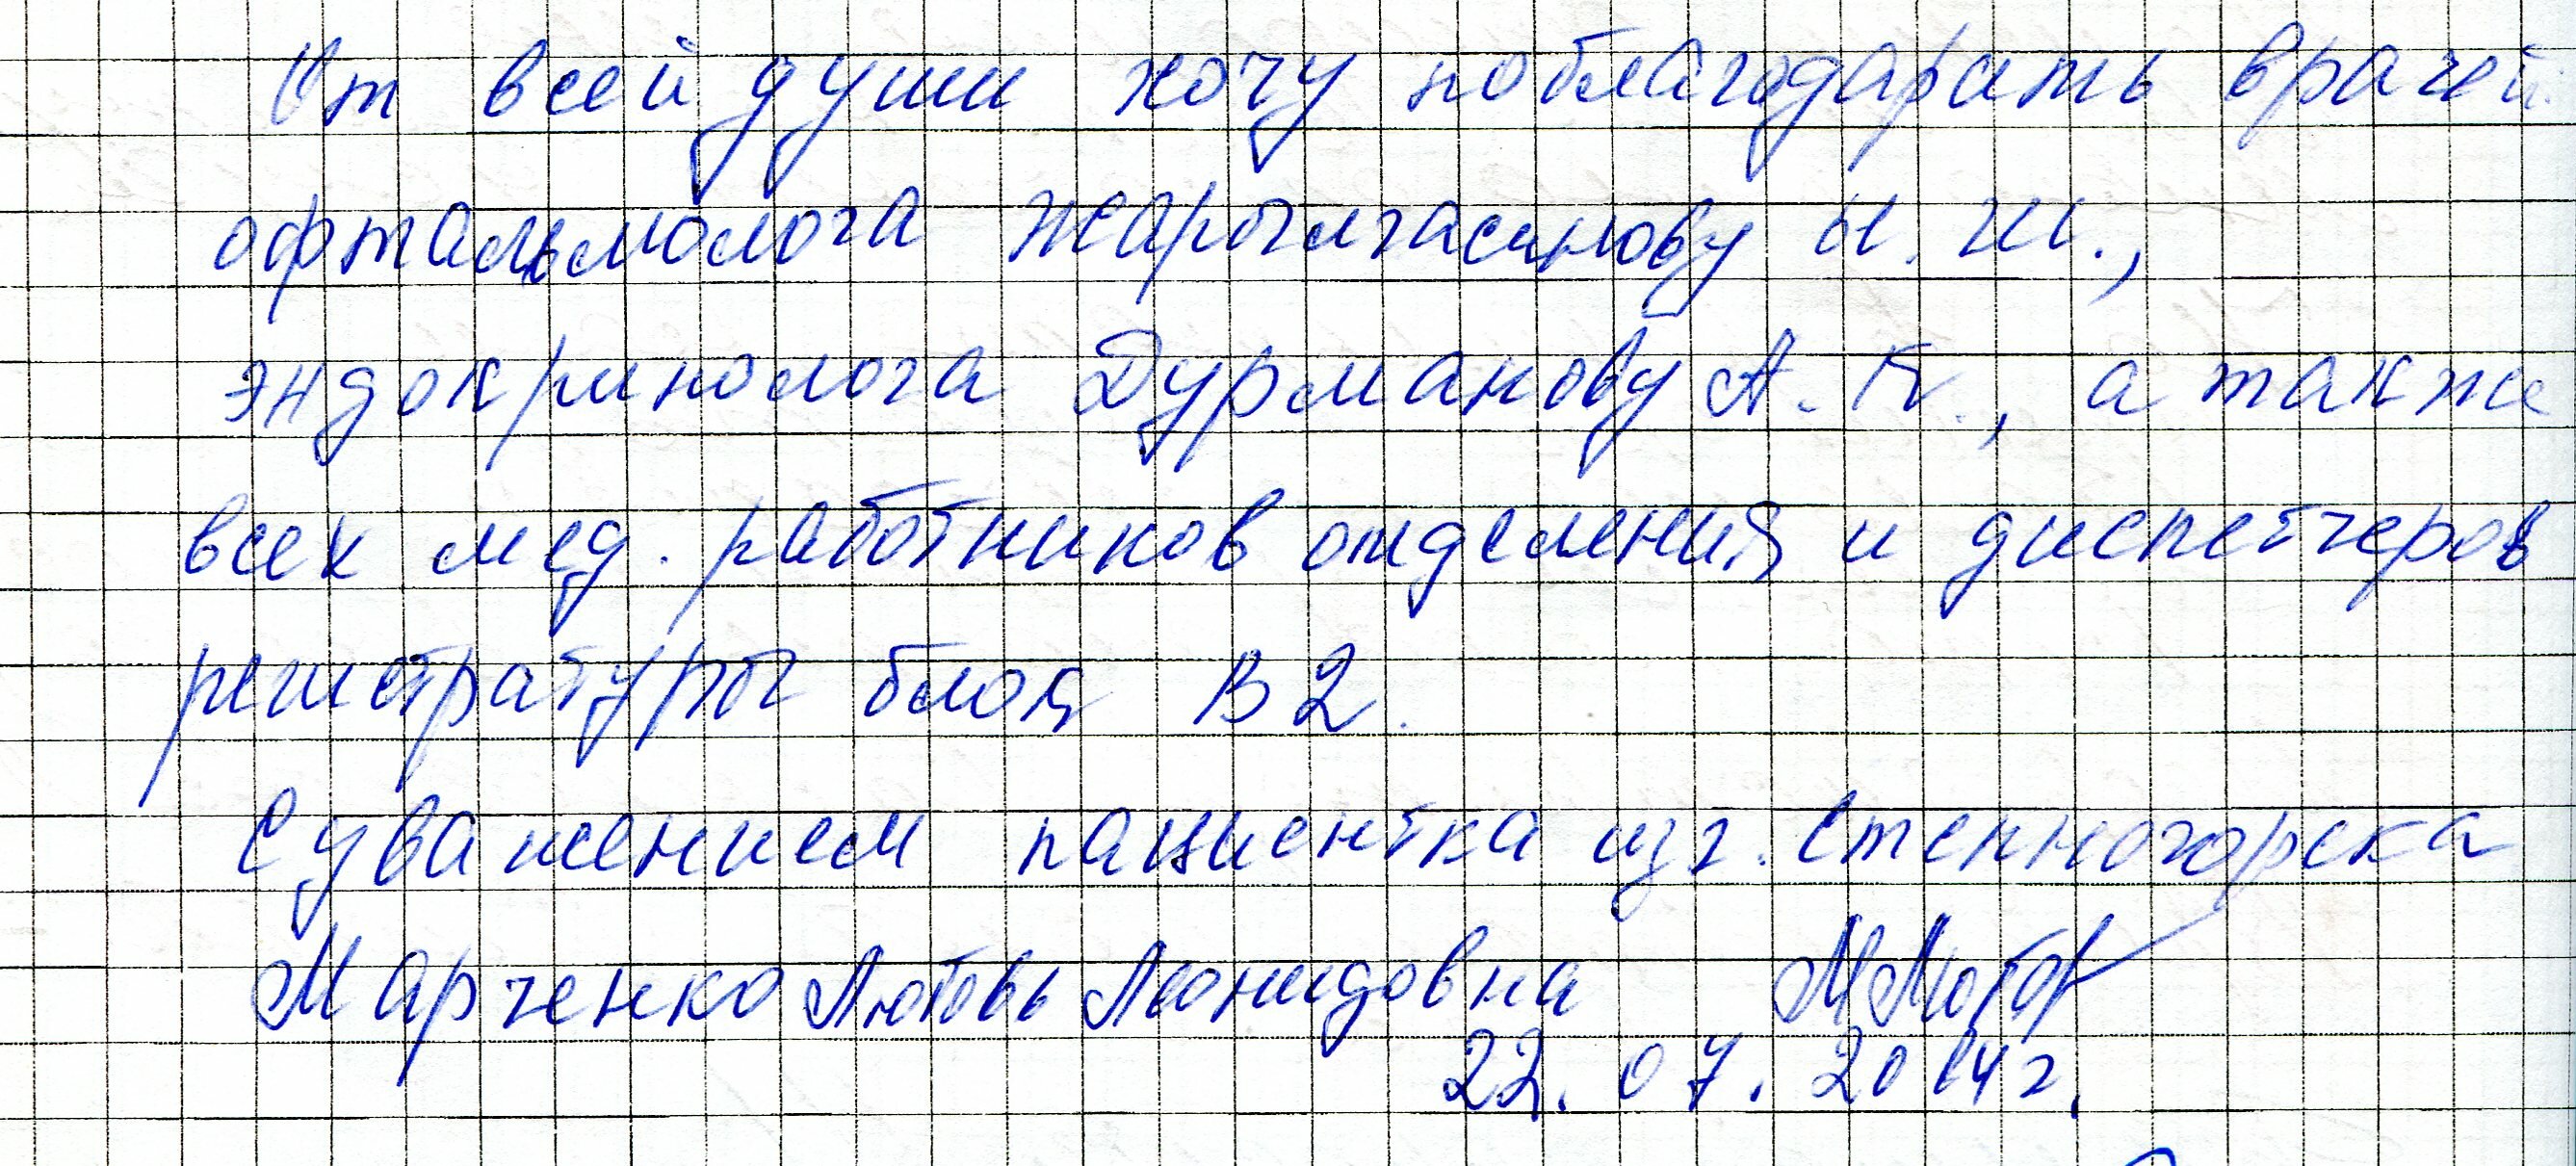 От всей души хочу поблагодарить врачей
офтальмолога Жарылгасинову Ы. Ш.,
эндокринолога Дурманову А. К., а также
всех мед. работников отделения и диспетчеров
регистратуры блока В2.
С уважением пациентка из г. Степногорска
Марченко Любовь Леонидовна
22.07.2014г.